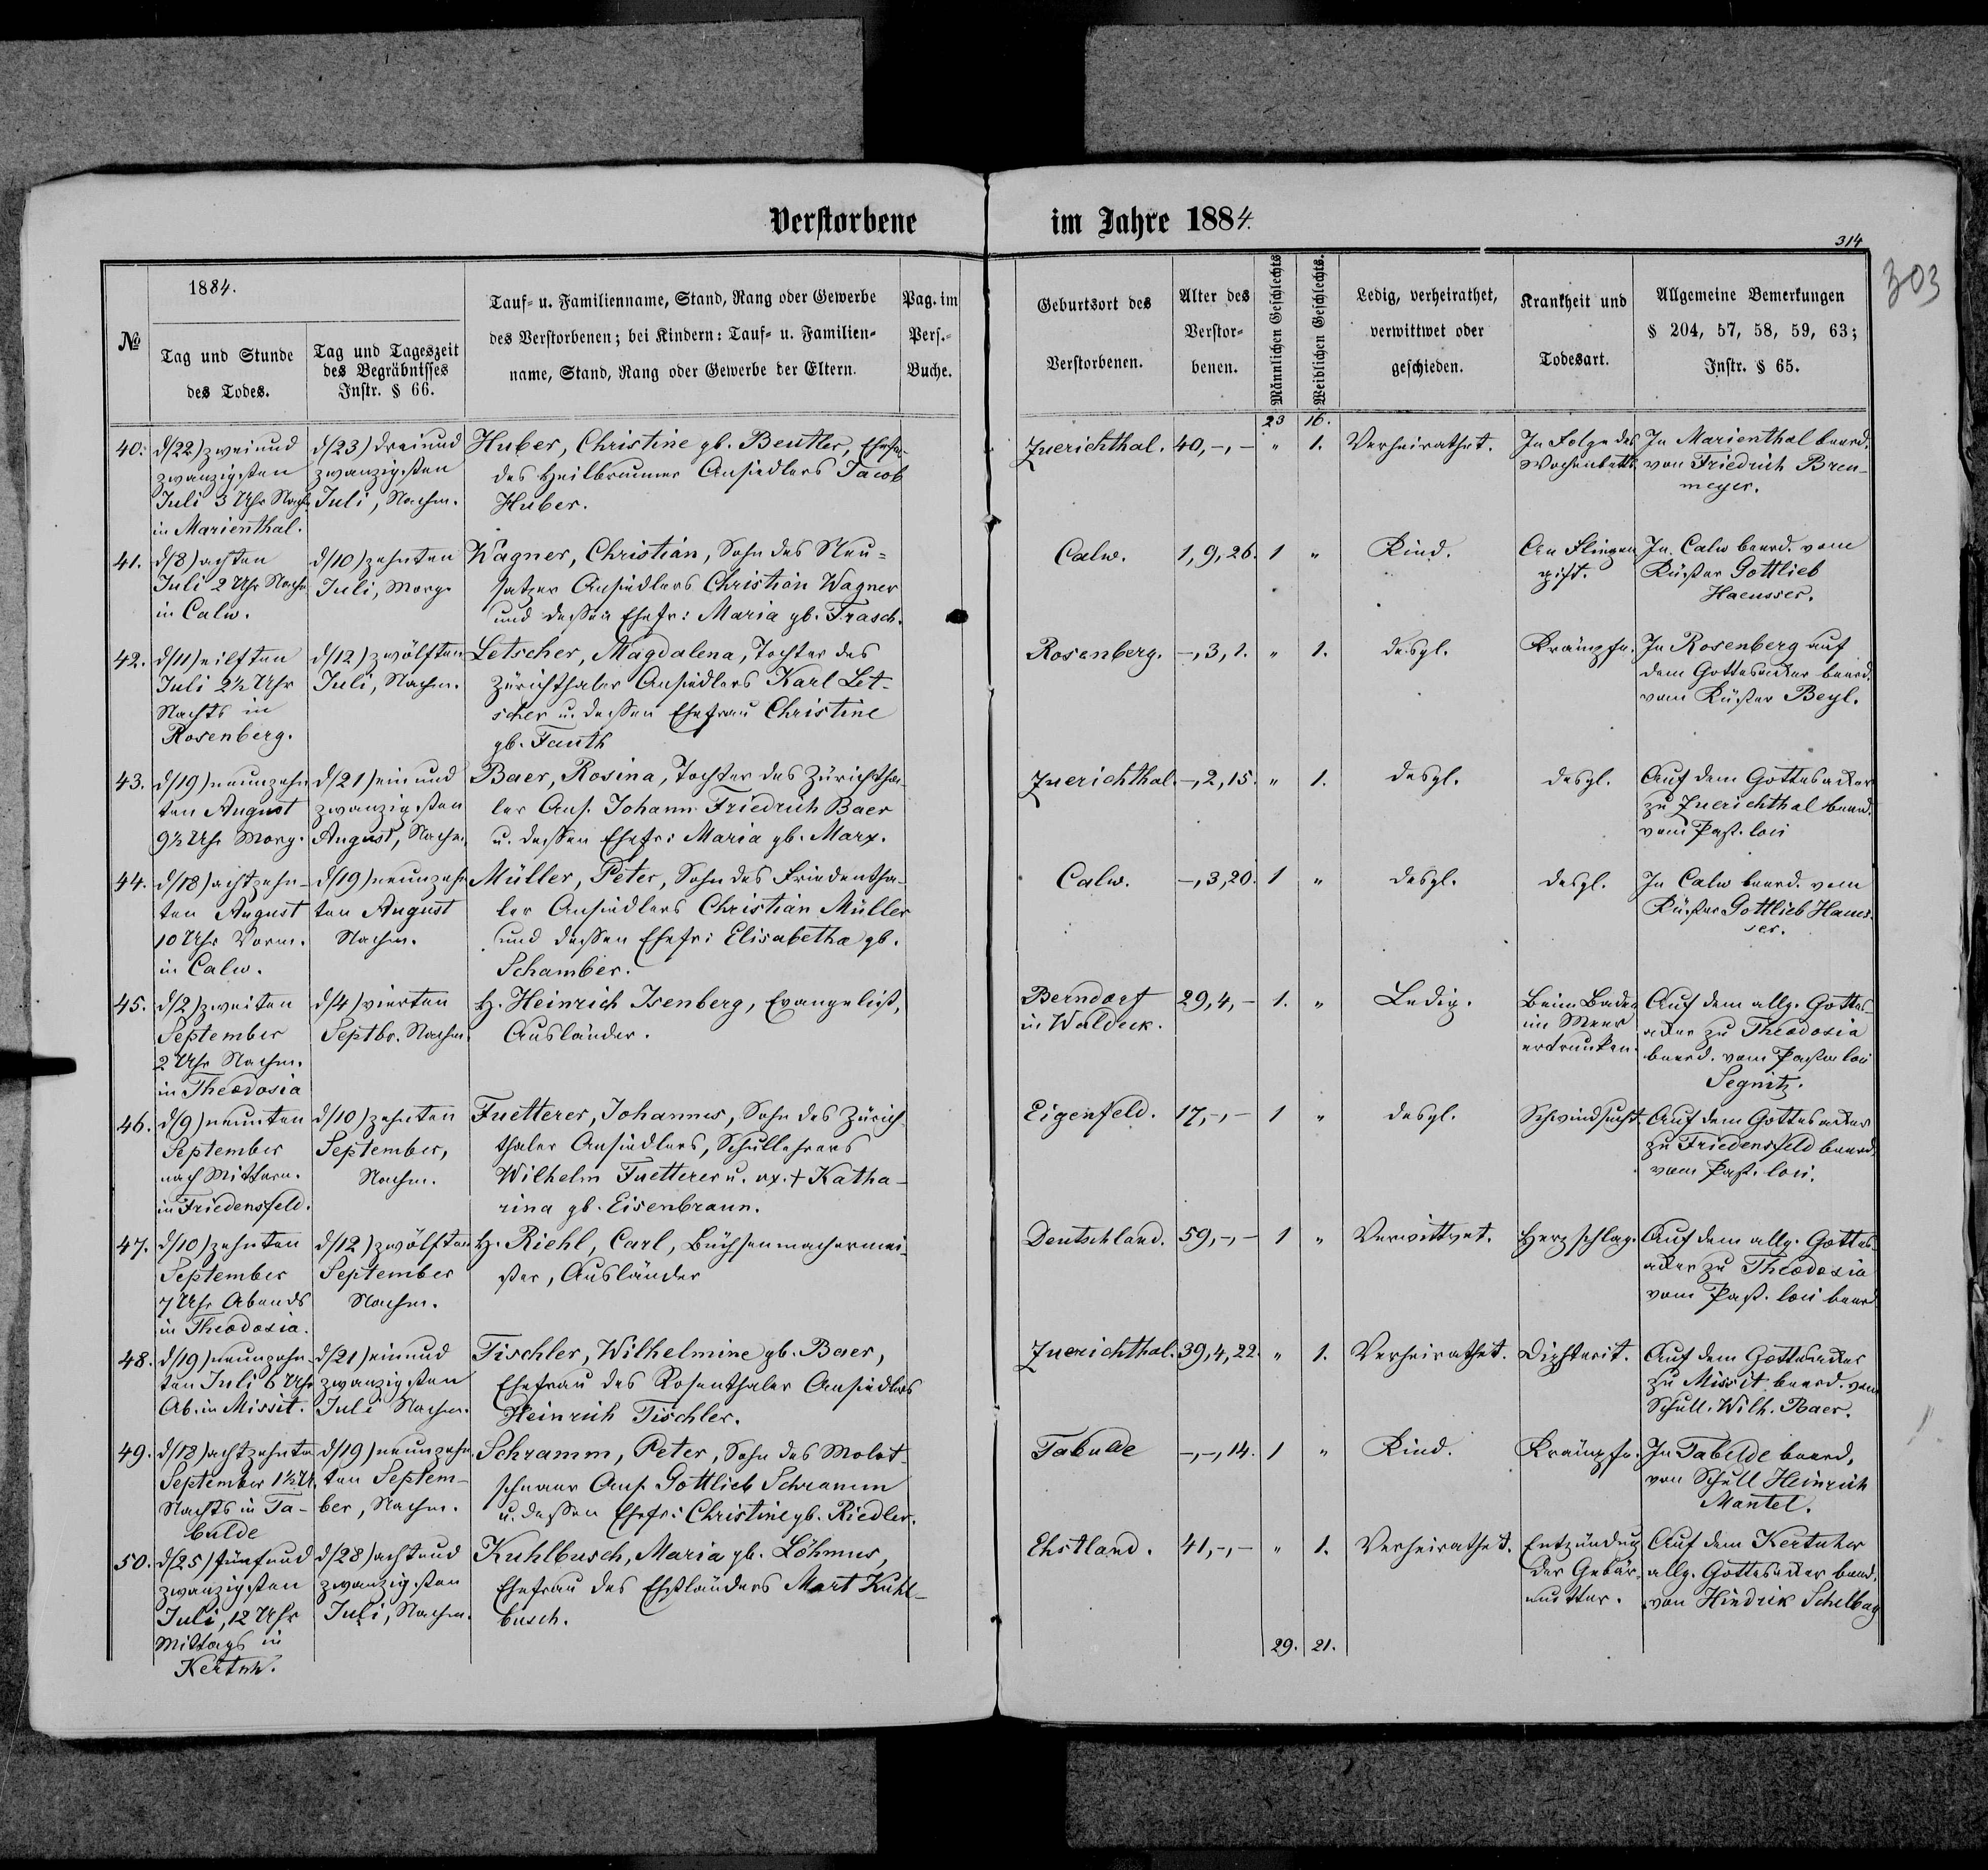 Verstorbene im Jahre 1884.
314
303
№
1884.
Tag und Stunde
des Todes.
Tag und Tageszeit
des Begräbnisses
Instr. § 66.
Tauf- u. Familienname, Stand, Rang oder Gewerbe
des Verstorbenen; bei Kindern: Tauf- u. Familien-
name, Stand, Rang oder Gewerbe der Eltern.
Pag. im
Pers.-
Buche.
Geburtsort des
Verstorbenen.
Alter des
Verstor-
benen.
Männlichen Geschlechts
Weiblichen Geschlechts.
Ledig, verheirathet,
verwittwet oder
geschieden.
Krankheit und
Todesart.
Allgemeine Bemerkungen
§ 204, 57, 58, 59, 63;
Instr. § 65.
23 16.
40.
d/22) zweiund
zwanzigsten
Juli 3 Uhr Nachm.
in Marienthal.
d/23) dreiund
zwanzigsten
Juli, Nachm.
Huber, Christine gb. Beutler, Ehefr.
des Heilbrunner Ansiedlers Jacob
Huber.
Zuerichthal.
40,-,-
" 1.
Verheirathet.
In Folge des
Wochenbetts.
In Marienthal beerd.
von Friedrich Bren-
meyer.
41.
d/8) achten
Juli 2 Uhr Nachm.
in Calw.
d/10) zehnten
Juli, Morg.
Wagner, Christian, Sohn des Neu-
satzer Ansiedlers Christian Wagner
und dessen Ehefr: Maria gb. Frasch.
Calw.
1,9,26.
1 "
Kind.
An Fliegen
gift.
In Calw beerd. vom
Küster Gottlieb
Haeusser.
42.
d/11) eilften
Juli 2½ Uhr
Nachts in
Rosenberg.
d/12) zwölften
Juli, Nachm.
Letscher, Magdalena, Tochter des
Zürichthaler Ansiedlers Karl Let-
scher u. dessen Ehefrau Christine
gb. Fauth
Rosenberg.
-,3,1.
" 1.
desgl.
Krämpfe.
In Rosenberg auf
dem Gottesacker beerd.
vom Küster Beyl.
43.
d/19) neunzehn
ten August
9½ Uhr Morg.
d/21) einund
zwanzigsten
August, Nachm.
Baer, Rosina, Tochter des Zürichtha-
ler Ans. Johann Friedrich Baer
u. dessen Ehefr: Maria gb. Marx.
Zuerichthal.
-,2,15.
" 1.
desgl.
desgl.
Auf dem Gottesacker
zu Zuerichthal beerd.
vom Past. loci
44.
d/18) achtzehn-
ten August
10 Uhr Vorm.
in Calw.
d/19) neunzehn
ten August
Nachm.
Müller, Peter, Sohn des Friedentha-
ler Ansiedlers Christian Müller
und dessen Ehefr: Elisabetha gb.
Schamber.
Calw.
-,3,20.
1 "
desgl.
desgl.
In Calw beerd. vom
Küster Gottlieb Haeus-
ser.
45.
d/2) zweiten
September
2 Uhr Nachm.
in Theodosia
d/4) vierten
Septbr. Nachm.
H. Heinrich Isenberg, Evangelist,
Ausländer.
Berndorf
in Waldeck.
29,4,-
1. "
Ledig.
Beim Baden
im Meer
ertrunken.
Auf dem allg. Gottes-
acker zu Theodosia
beerd. vom Pastor loci
Segnitz.
46.
d/9) neunten
September
nach Mittern.
in Friedensfeld.
d/10) zehnten
September,
Nachm.
Fuetterer, Johannes, Sohn des Zürich-
thaler Ansiedlers, Schullehrers
Wilhelm Fuetterer u. ux. + Katha-
rina gb. Eisenbraun.
Eigenfeld.
17,-,-
1 "
desgl.
Schwindsucht.
Auf dem Gottesacker
zu Friedensfeld beerd.
vom Past. loci.
47.
d/10) zehnten
September
7 Uhr Abends
in Theodosia.
d/12) zwölften
September
Nachm.
H. Riehl, Carl, Büchsenmachermei-
ster, Ausländer
Deutschland.
59,-,-
1 "
Verwittwet.
Herzschlag.
Auf dem allg. Gottes-
acker zu Theodosia
vom Past. loci beerd
48.
d/19) neunzehn-
ten Juli 6 Uhr
Ab. in Missit.
d/21) einund
zwanzigsten
Juli Nachm.
Tischler, Wilhelmine gb. Baer,
Ehefrau des Rosenthaler Ansiedlers
Heinrich Tischler.
Zuerichthal.
39,4,22.
" 1.
Verheirathet.
Diphterit.
Auf dem Gottesacker
zu Missit beerd. vom
Schull. Wilh. Baer.
49.
d/18) achtzehnten
September 1½ U.
Nachts in Ta-
bulde
d/19) neunzehn
ten Septem-
ber, Nachm.
Schramm, Peter, Sohn des Molot-
schnaer Ans. Gottlieb Schramm
u. dessen Ehefr: Christine gb. Riedler.
Tabulde
-,-,14.
1 "
Kind.
Krämpfe.
In Tabulde beerd.
von Schull Heinrich
Mantel.
50.
d/25) fünfund
zwanzigsten
Juli, 12 Uhr
Mittags in
Kertuk.
d/28) achtund
zwanzigsten
Juli, Nachm.
Kuhlbusch, Maria gb. Löhmus,
Ehefrau des Ehstländers Mart Kuhl-
busch.
Ehstland.
41,-,-
" 1.
Verheirathet.
Entzündung
der Gebär-
mutter.
Auf dem Kertuker
allg. Gottesacker beerd.
von Hindrik Schelbag
29. 21.